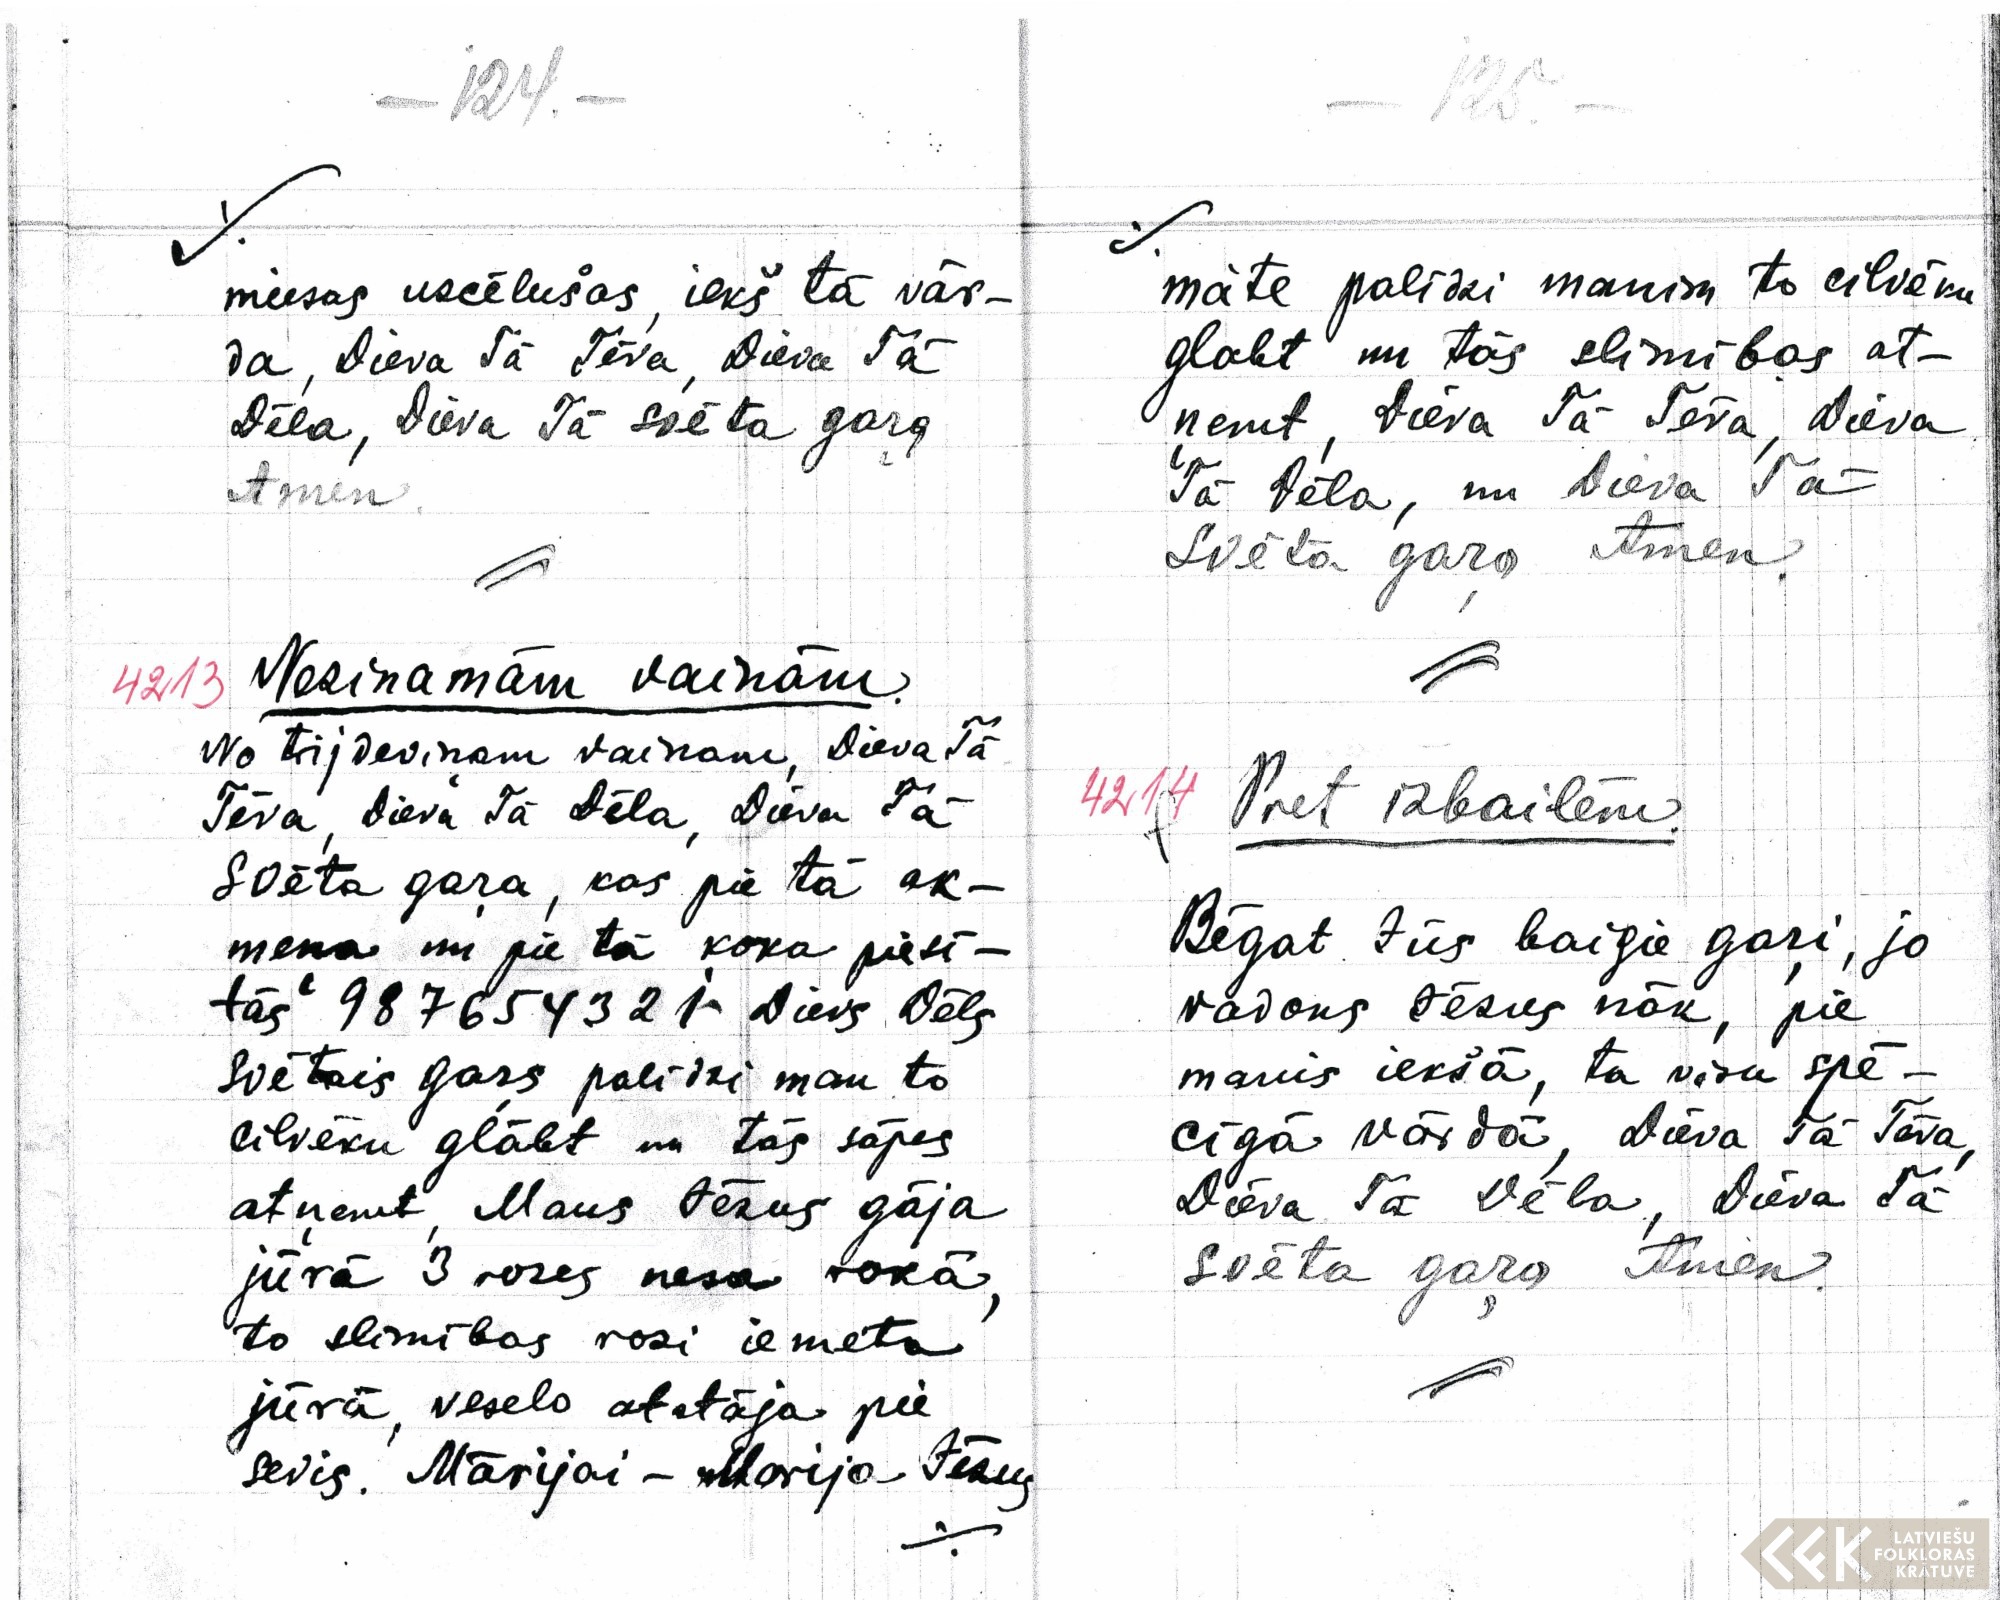 — 124. —
miesas uscēlušas, iekš tā vār-
da, Dieva Tā Tēva, Dieva Tā
Dēla, Dieva Tā svēta gaŗa
Amen.
4213 Nezinamām vainām.
No trijdeviņam vainam, Dieva Tā
Tēva, Dieva Tā Dēla, Dieva Tā
Svēta gaŗa, kas pie tā ak-
mena un pie tā koka piesi-
tās 987654321 Dievs Dēls
Svētais gaŗs palīdzi man to
cilvēku glābt un tās sāpes
atņemt, Maus Jēzus gāja
jūrā 3 rozes nesa rokā,
to slimības rozi iemeta
jūrā, veselo atstāja pie
sevis. Mārijai – Marija Jēzus
./.
— 125. —
māte palīdzi manim to cilvēku
glabt un tās slimības at-
ņemt, Dieva Tā Tēva, Dieva
Tā Dēla, un Dieva Tā
Svēta gaŗa Amen.
4214 Pret izbailēm.
Bēgat Jūs baigie gaŗi, jo
vadons Jēzus nāk, pie
manis iekšā, ta visu spē-
cīgā vārdā, Dieva Tā Tēva,
Dieva Tā Dēla, Dieva Tā
Svēta gaŗa Amen.
LATVIEŠU
FOLKLORAS
KRĀTUVE